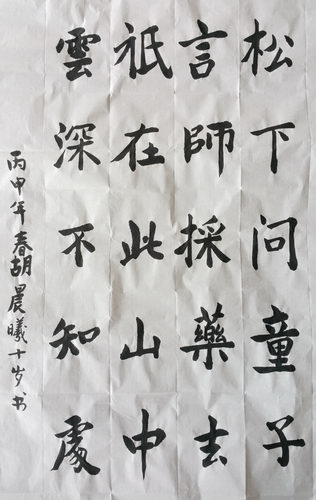 松下问童子
言師採藥去
祇在此山中
雲深不知處
丙申年春胡晨曦十岁书